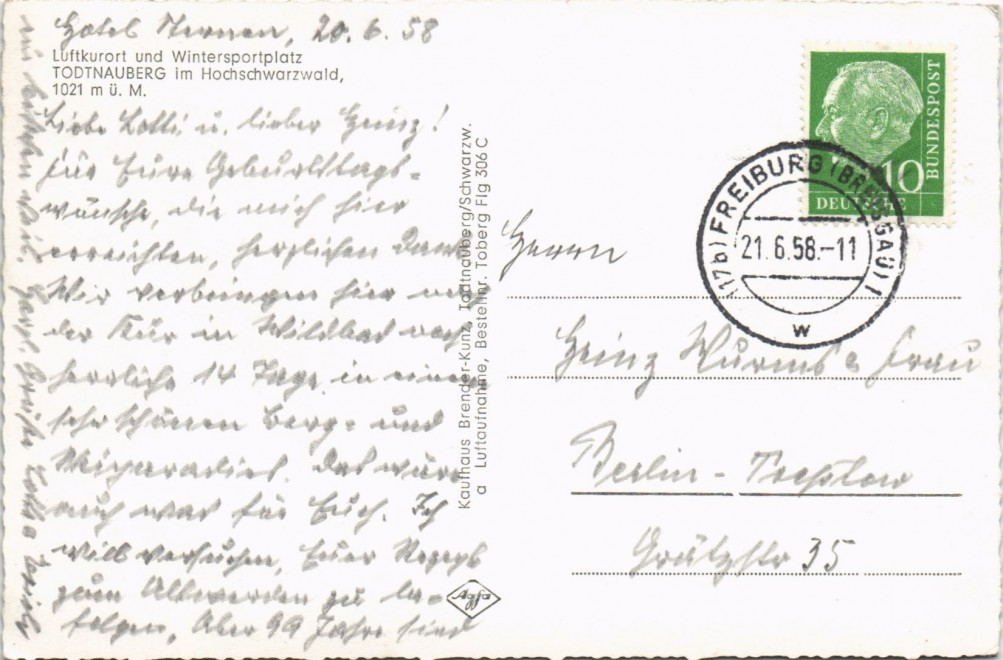 Hotel Sternen, 20.6.58
Luftkurort und Wintersportplatz
TODTNAUBERG im Hochschwarzwald,
1021 m ü. M.
Liebe Lotti u. lieber Heinz!
Für Eure Geburtstags-
wünsche, die mich hier
erreichten, herzlichen Dank
Wir verbringen hier nach
der Kur in Wildbad noch
herrliche 14 Tage in einem
sehr schönen Berg- und
Das wäre
auch was für Euch. Ich
will versuchen, Euer Rezept
zum Altwerden zu be-
folgen, Aber 99 Jahre sind
ein bißchen viel. Herzl. Grüße
Kaufhaus Brender-Kunz, Todtnauberg/Schwarzw.
a Luftaufnahme, Bestellnr. Toberg Flg 306 C
Agfa
DEUTSCHE BUNDESPOST
10
(17b) FREIBURG (BREISGAU) 1
21.6.58.-11
w
Herrn
Heinz Wurms & Frau
Berlin-Treptow
Grätzstr 35